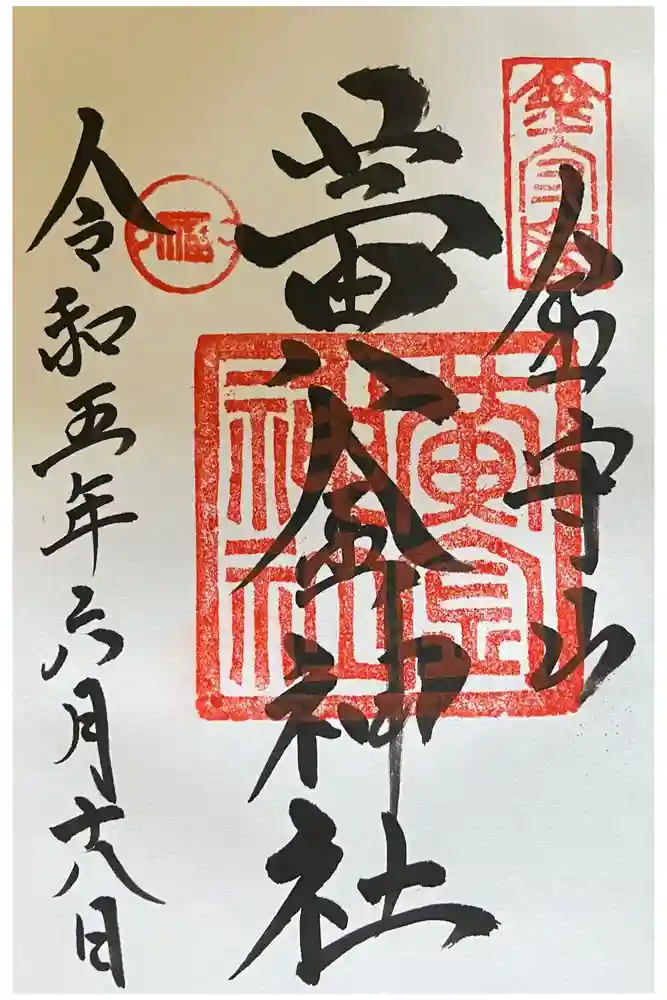 金守山
金守山
黄金神社
黄金神社
令和五年六月十八日